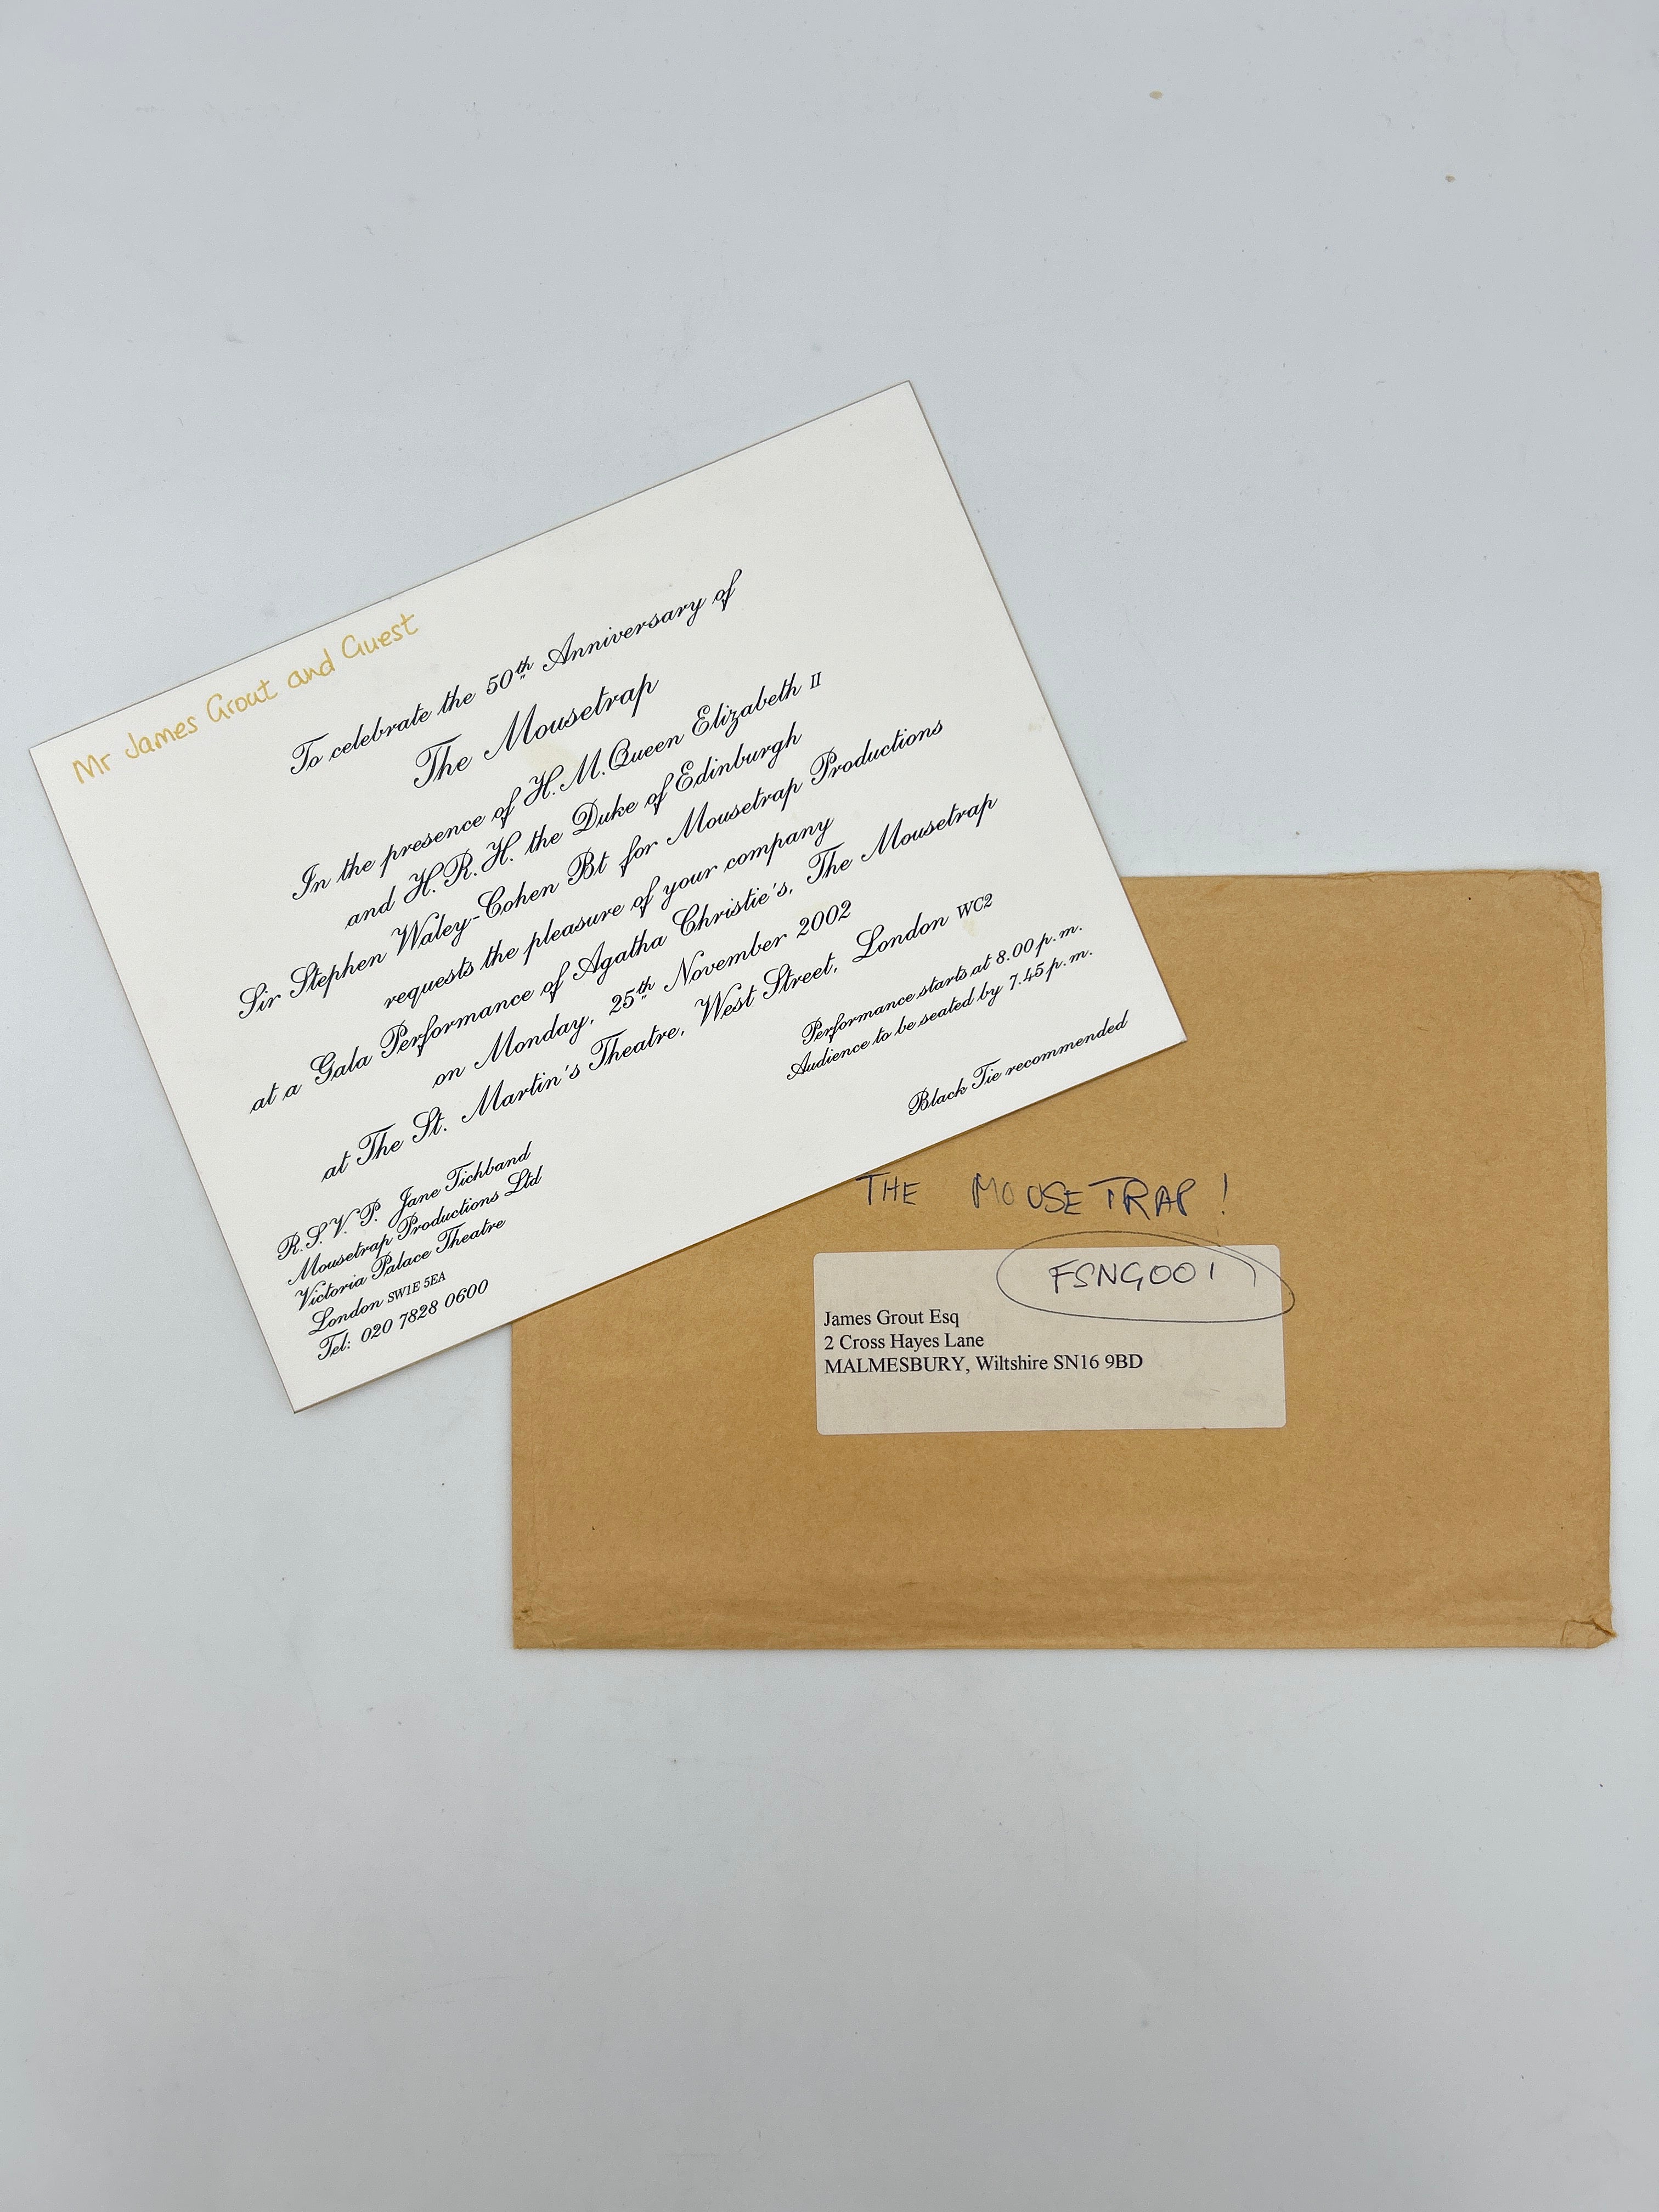 Mr James Grout and Guest
To celebrate the 50th Anniversary of
The Mousetrap
In the presence of H.M.Queen Elizabeth II
and H.R.H. the Duke of Edinburgh
Sir Stephen Waley-Cohen Bt for Mousetrap Productions
requests the pleasure of your company
at a Gala Performance of Agatha Christie's, The Mousetrap
on Monday, 25th November 2002
at The St. Martin's Theatre, West Street, London WC2
Performance starts at 8.00 p.m.
Audience to be seated by 7.45 p.m.
Black Tie recommended
R.S.V.P. Jane Tichband
Mousetrap Productions Ltd
Victoria Palace Theatre
London SW1E 5EA
Tel: 020 7828 0600
THE MOUSETRAP!
FSNG001
James Grout Esq
2 Cross Hayes Lane
MALMESBURY, Wiltshire SN16 9BD